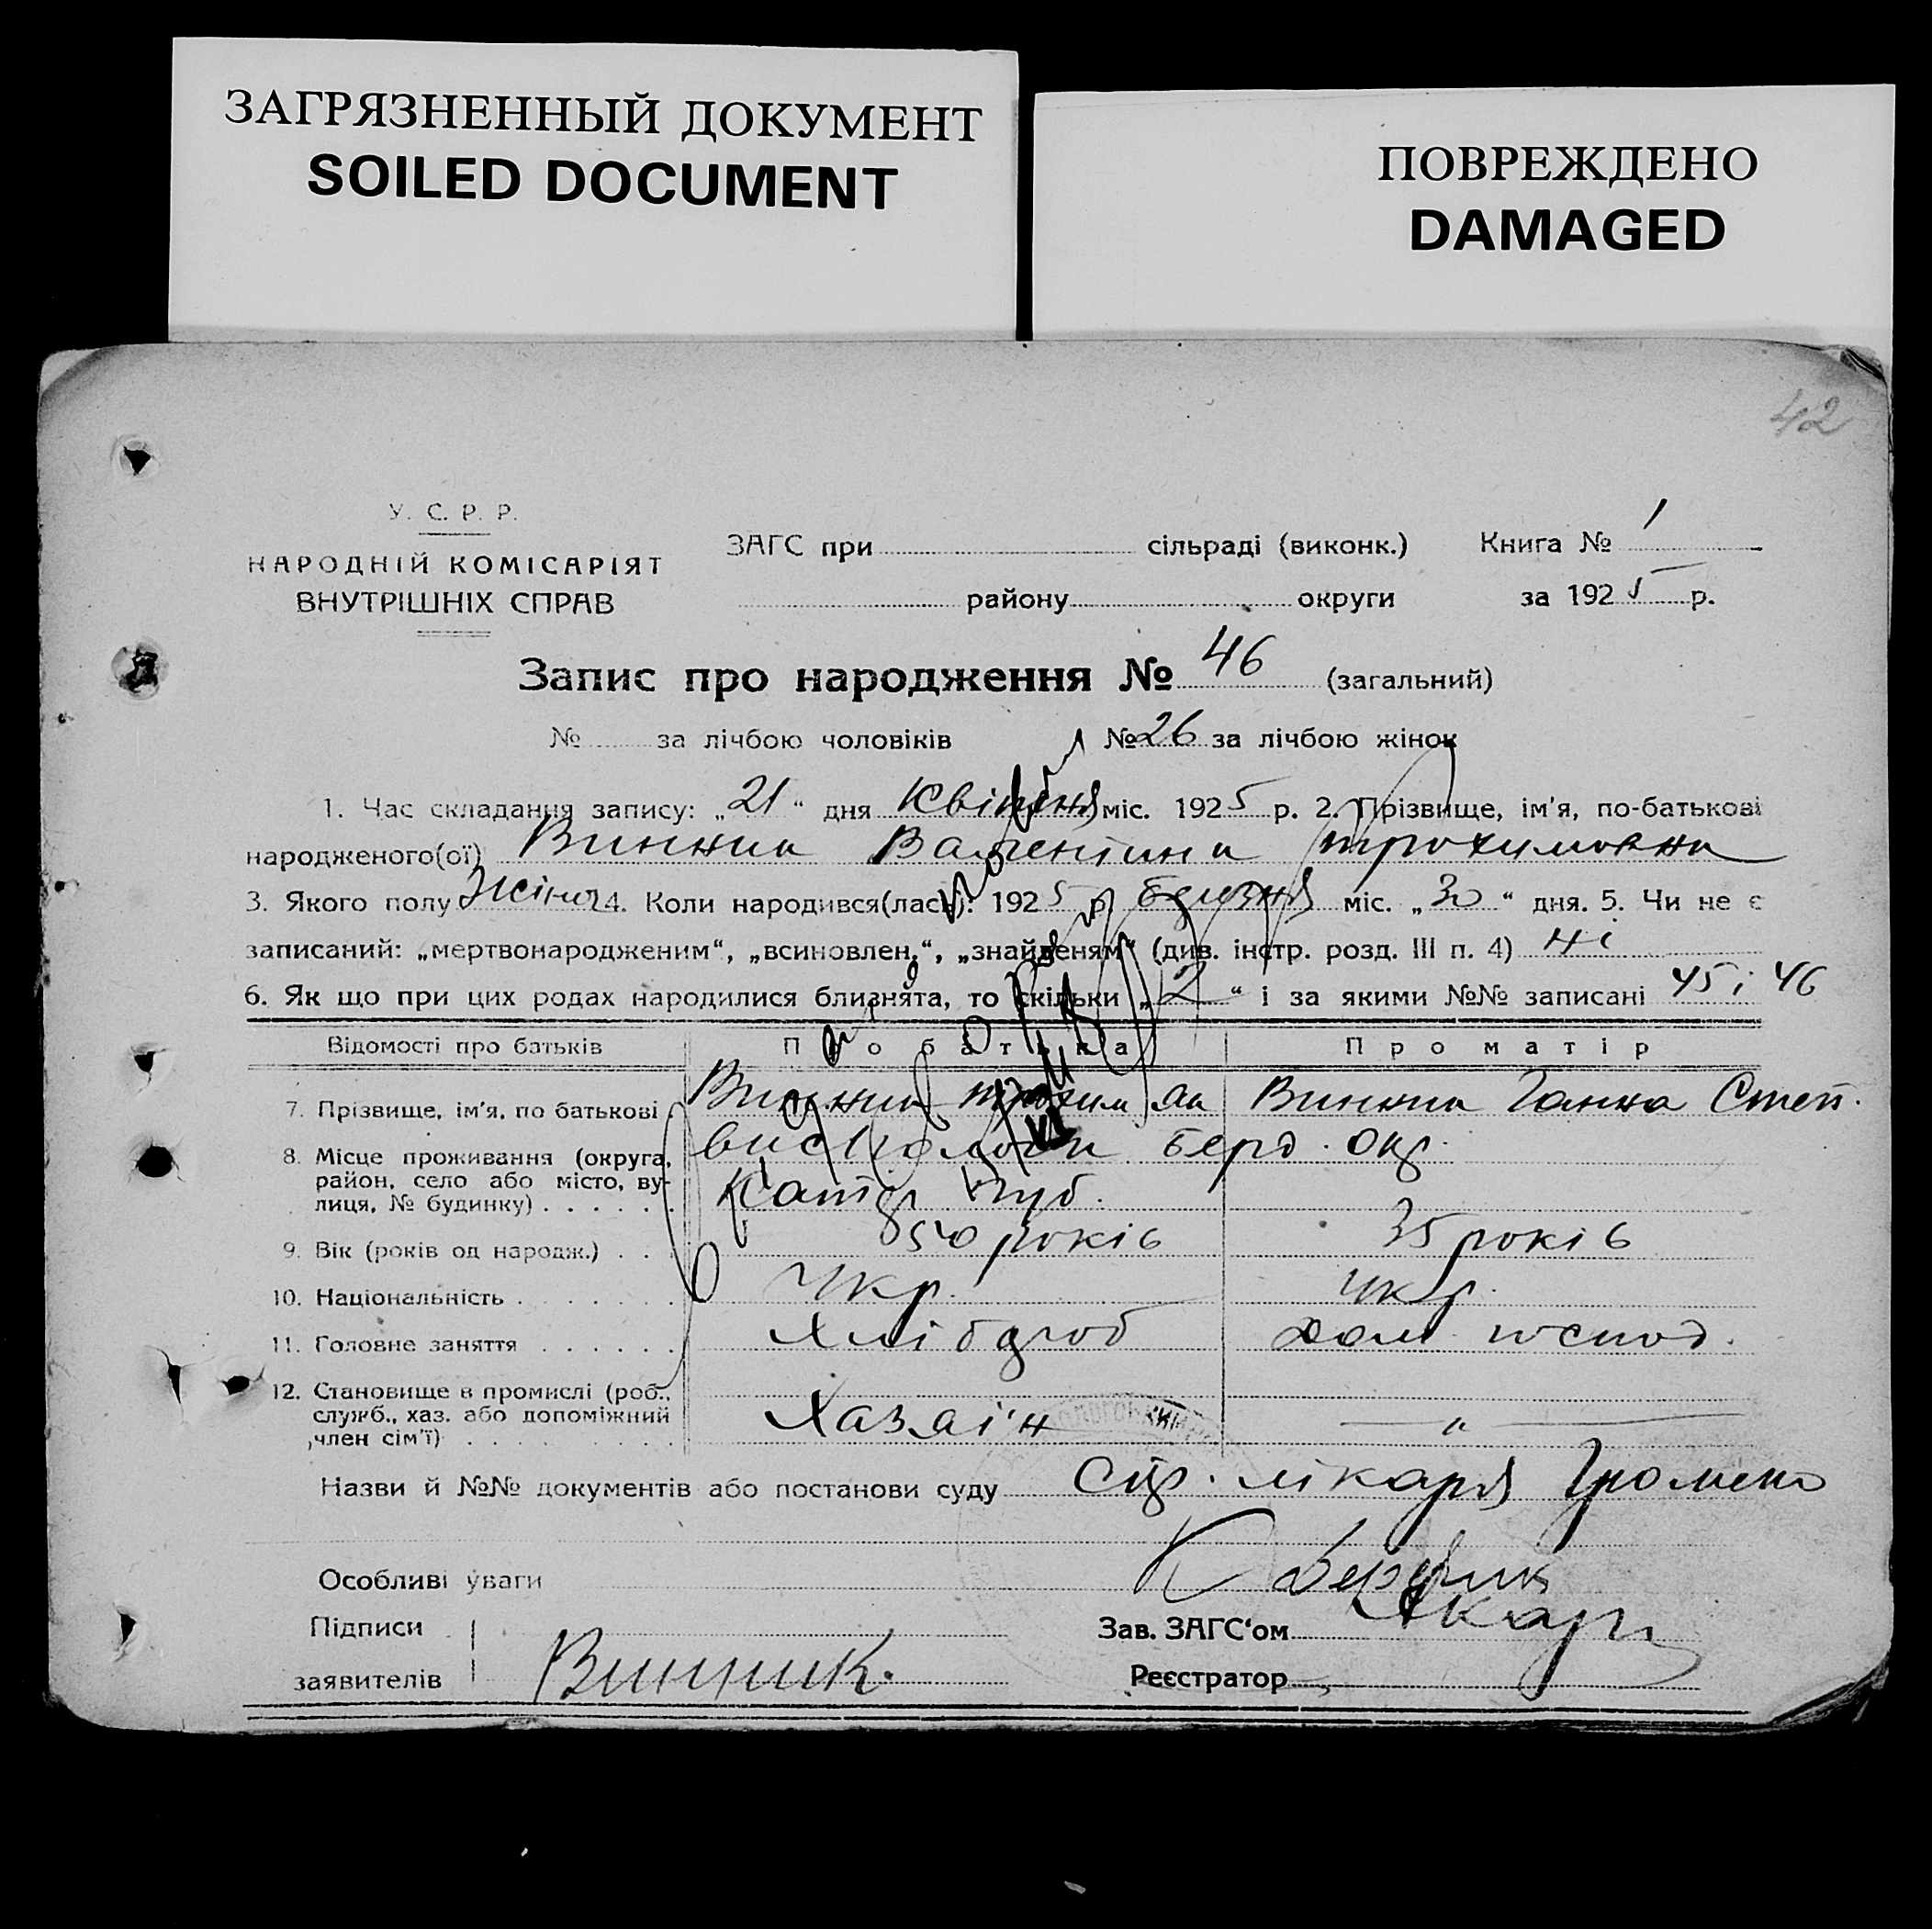 ЗАГРЯЗНЕННЫЙ ДОКУМЕНТ
SOILED DOCUMENT
ПОВРЕЖДЕНО
DAMAGED
42
У. С. Р. Р.
НАРОДНІЙ КОМІСАРІЯТ
ВНУТРІШНІХ СПРАВ
ЗАГС при сільраді (виконк.) Книга № 1
району округи за 1925 р.
Запис про народження № 46 (загальний)
№ за лічбою чоловіків № 26 за лічбою жінок
1. Час складання запису: „21“ дня Квітня міс. 1925 р. 2. Прізвище, ім'я, по-батькові
народженого(ої) Винник Валентина Трохимовна
3. Якого полу Жіноч 4. Коли народився(лась): 1925 р. міс. „30“ дня. 5. Чи не є
записаний: „мертвонародженим“, „всиновлен.“, „знайденям“ (див. інстр. розд. III п. 4) ні
6. Як що при цих родах народилися близнята, то скільки „2“ і за якими №№ записані 45 і 46
Відомості про батьків Про батька Про матір
7. Прізвище, ім'я, по батькові Винник Трохим Як Винник Ганна Степ.
8. Місце проживання (округа, район, село або місто, вулиця, № будинку) Берд. Окр.
Катер. Губ.
9. Вік (років од народж.) 50 років 35 років
10. Національність Укр. Укр.
11. Головне заняття Хлібороб дом. господ.
12. Становище в промислі (роб., служб., хаз. або допоміжний член сім'ї) Хазяїн — " —
Назви й №№ документів або постанови суду лікаря
Особливі уваги
Підписи
заявителів Винник.
Зав. ЗАГС'ом
Реєстратор